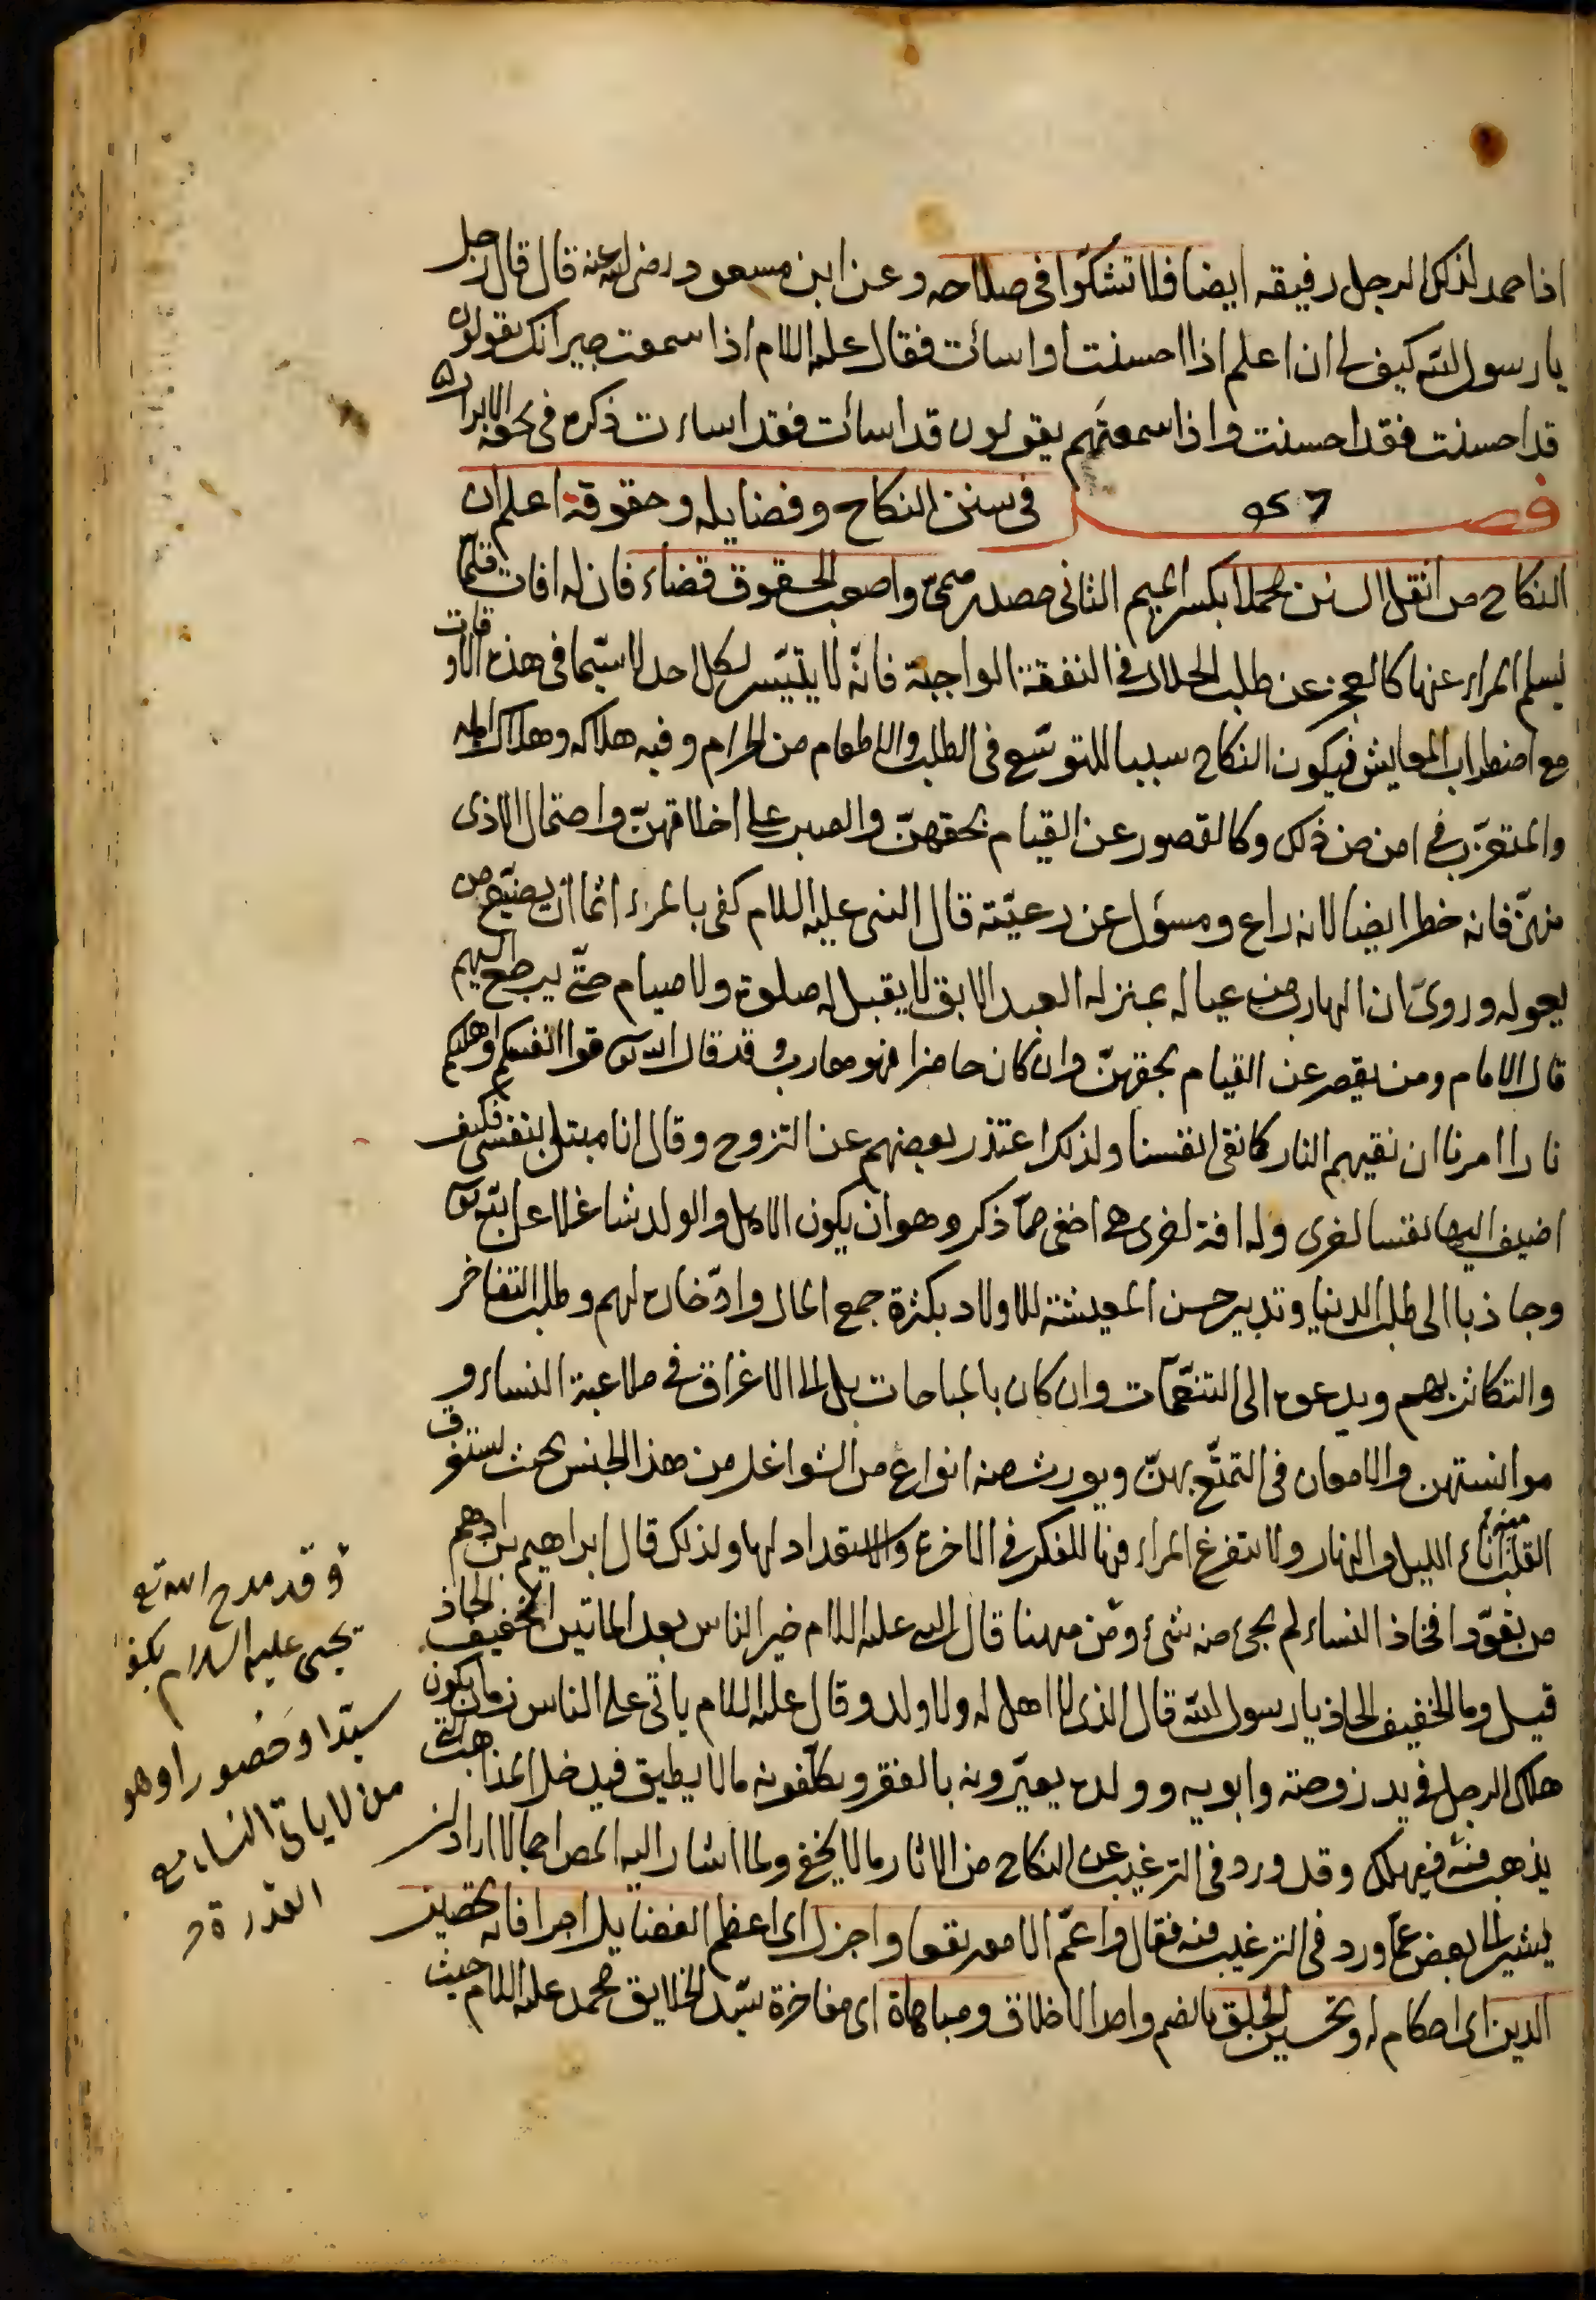 اذا حمد لذلك الرجل رفيقه ايضا فلا تشكوا فى صلاحه وعن ابن مسعود رضى الله عنه قال قال رجل
يا رسول الله كيف لى ان اعلم اذا احسنت او اسأت فقال عليه السلام اذا سمعت جيرانك يقولون
قد احسنت فقد احسنت واذا سمعتهم يقولون قد اسأت فقد اساءت ذكره فى تحفة الابرار
فصل فى سنن النكاح وفضايله وحقوقه اعلم ان
النكاح من اثقل السنن محملا بكسر الميم الثانى مصدر ميمى واصعب الحقوق قضاء فان له افات قلما
يسلم المراء عنها كالعجز عن طلب الحلال فى النفقة الواجبة فانه لا يتيسر لكل احد لا سيما فى هذه الاوقات
مع اضطراب المعايش فيكون النكاح سببا للتوسع فى الطلب والاطعام من الحرام وفيه هلاكه وهلاك اهله
والمتعزب فى امن من ذلك وكالقصور عن القيام بحقهن والصبر على اخلاقهن واحتمال الاذى
منهن فانه خطر ايضا لانه راع ومسؤل عن رعيته قال النبى عليه السلام كفى بالمراء اثما ان يضيع من
يعوله وروى ان الهارب من عياله بمنزلة العبد الابق لا يقبل له صلوة ولا صيام حتى يرجع اليهم
قال الامام ومن يقصر عن القيام بحقهن وان كان حاضرا فهو هارب وقد قال الله تع قوا انفسكم واهليكم
نارا امرنا ان نقيهم النار كما نقى انفسنا ولذلك اعتذر بعضهم عن التزوج وقال انا مبتلى بنفسى فكيف
اضيف اليها نفسا اخرى وله افة اخرى هى اخفى مما ذكر وهو ان يكون الاهل والولد شاغلا عن الله تع
وجاذبا الى طلب الدنيا وتدبير حسن المعيشة للاولاد بكثرة جمع المال وادخاره لهم وطلب التفاخر
والتكاثر بهم ويدعوه الى التنعمات وان كان بالمباحات بل الى الاغراق فى ملاعبة النساء و
موانستهن والامعان فى التمتع بهن ويورث منه انواع من الشواغل من هذا الجنس بحيث يستغرق
القلب منه اناء الليل والنهار ولا يتفرغ المراء فيها للفكر فى الاخرة والاستعداد لها ولذلك قال ابراهيم بن ادهم
من تعود افخاذ النساء لم يجئ منه شئ ومن ههنا قال النبى عليه السلام خير الناس بعد الماتين الخفيف الحاذ
قيل وما الخفيف الحاذ يا رسول الله قال الذى لا اهل له ولا ولد وقال عليه السلام ياتى على الناس زمان يكون
هلاك الرجل فى يد زوجته وابويه وولده يعيرونه بالفقر ويكلفونه مالا يطيق فيدخل المذاهب التى
يذهب منه فيهلك وقد ورد فى الترغيب عن النكاح من الاثار مالا يخفى ولما اشار اليه المص اجمالا اراد ان
يشير الى بعض مما ورد فى الترغيب فيه فقال واعم الامور نفعا واجزل اى اعظم الفضايل اجرا فانه تحصين
الدين اى احكام له وتحسين الخلق بالضم واحد الاخلاق ومباهاة اى مفاخرة سيد الخلايق محمد عليه السلام حيث
وقد مدح الله تع
يحيى عليه السلام بكونه
سيدا وحصورا وهو
من لا ياتى النساء مع
القدرة